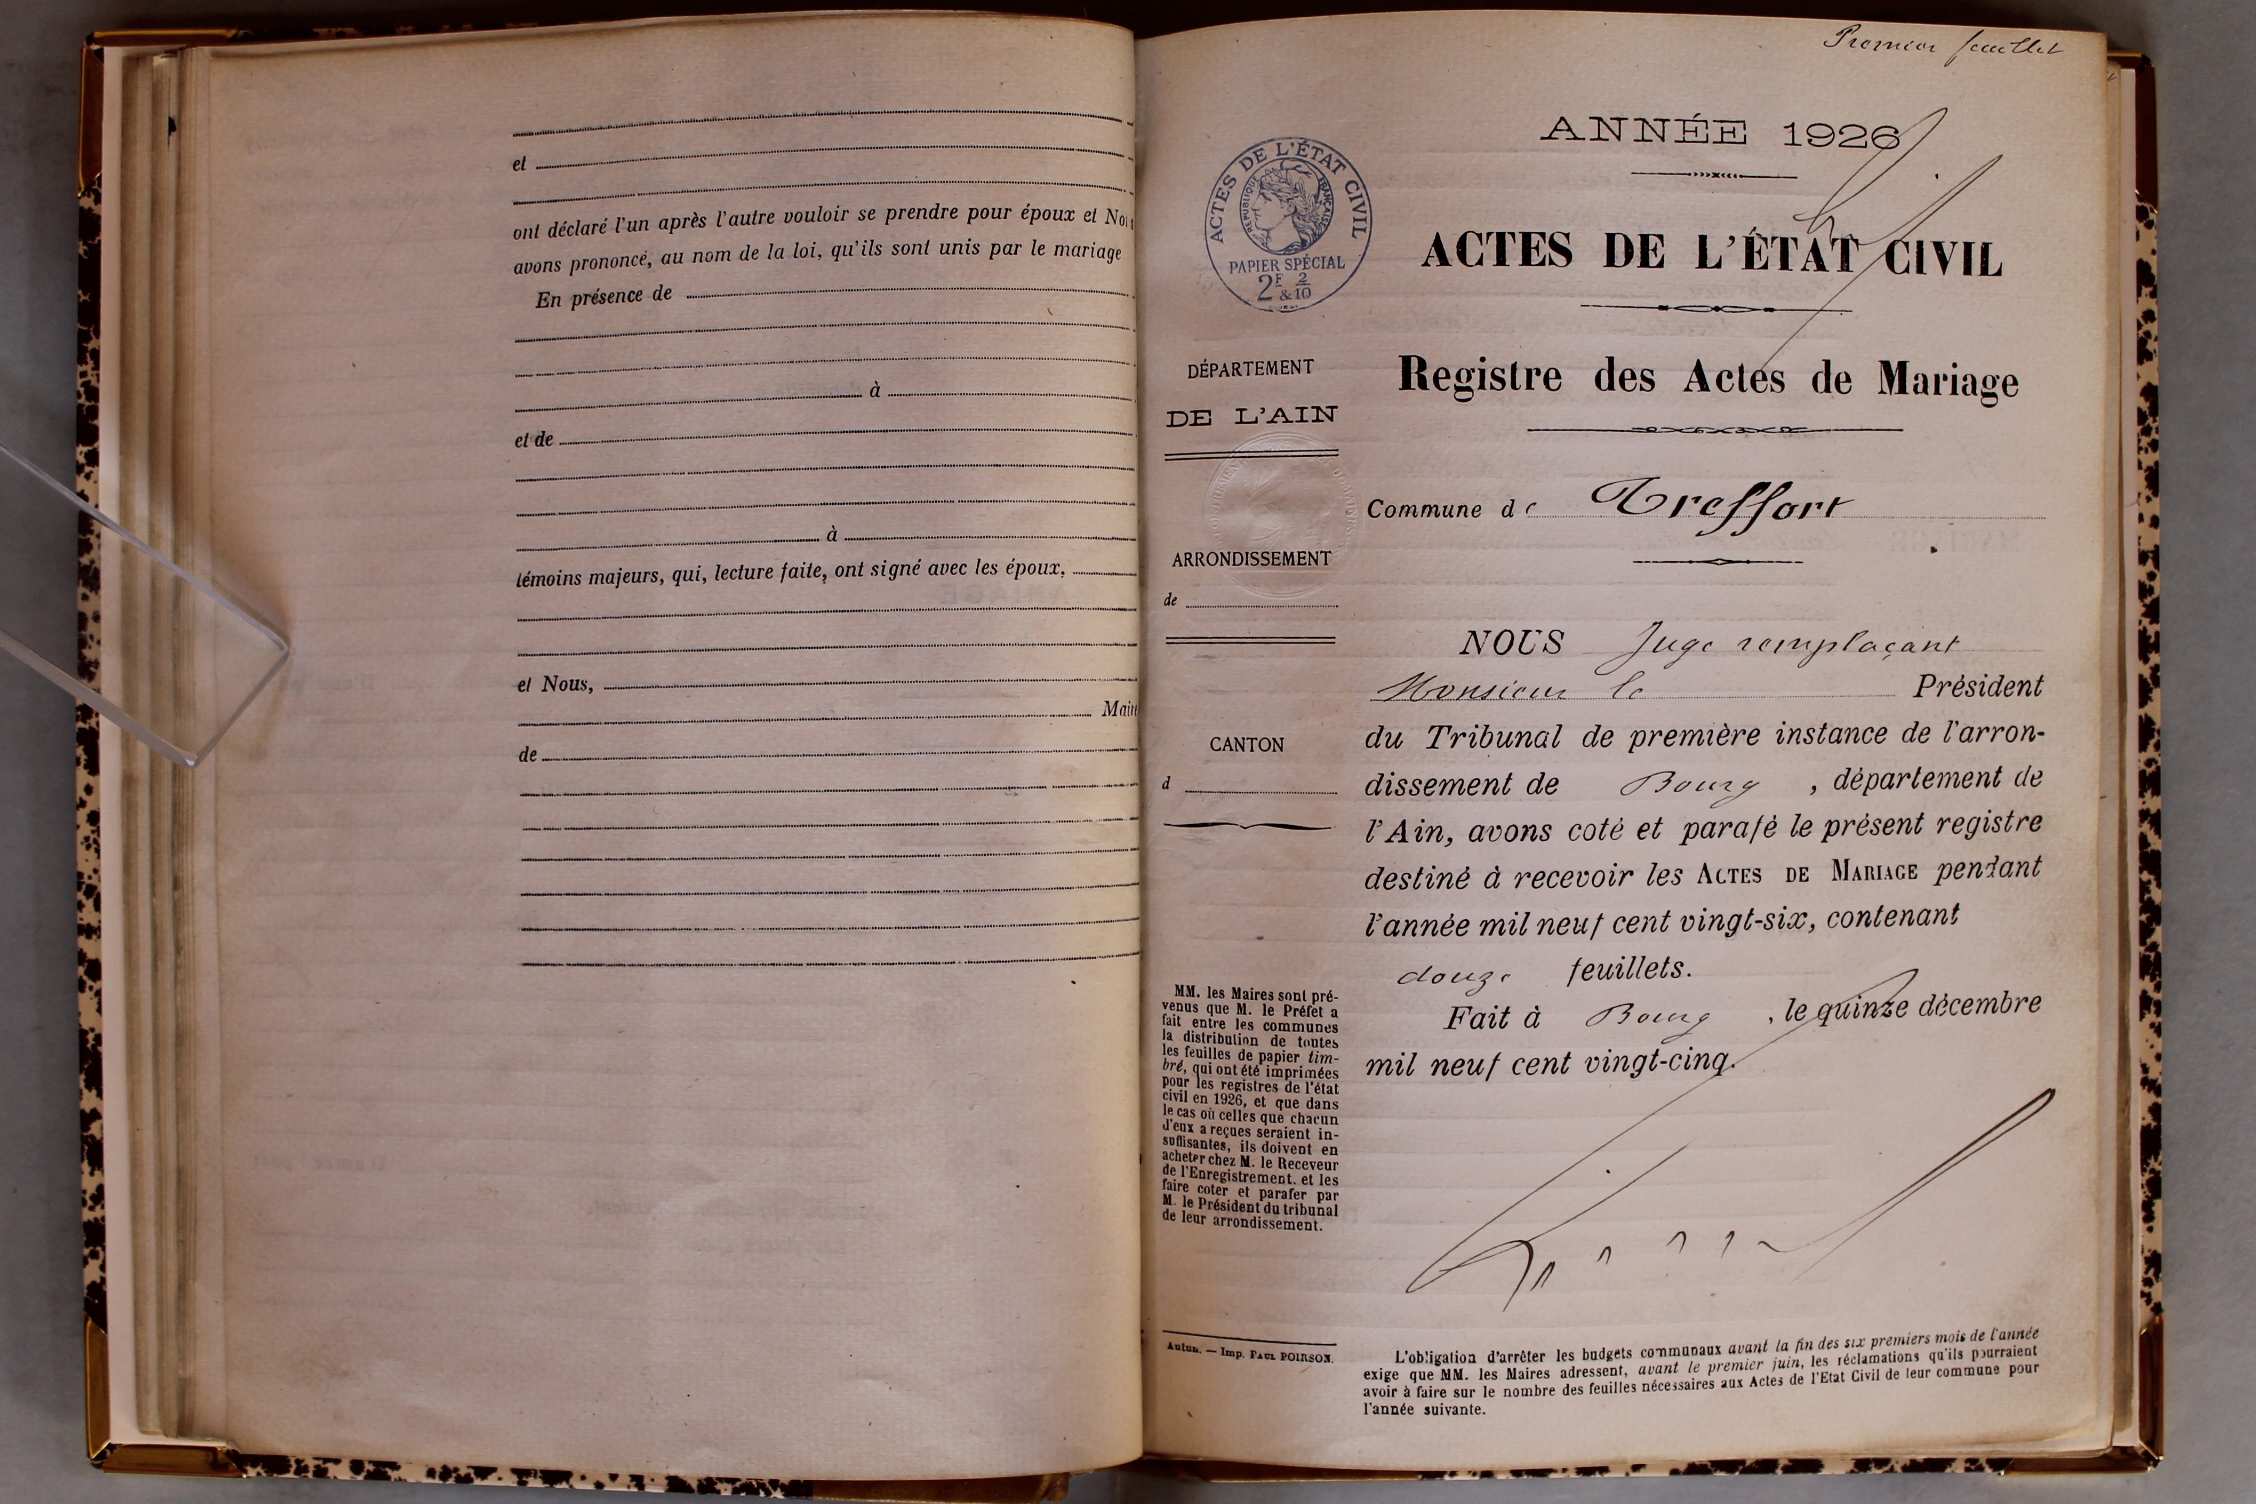 et
ont déclaré l'un après l'autre vouloir se prendre pour époux et Nous
avons prononcé, au nom de la loi, qu'ils sont unis par le mariage
En présence de
à
et de
à
témoins majeurs, qui, lecture faite, ont signé avec les époux,
et Nous,
Maire
de
Premier feuillet
ANNÉE 1926
ACTES DE L'ÉTAT CIVIL
RÉPUBLIQUE FRANÇAISE
PAPIER SPÉCIAL
2F & 2/10
ACTES DE L'ÉTAT CIVIL
Registre des Actes de Mariage
DÉPARTEMENT
DE L'AIN
Commune de Treffort
ARRONDISSEMENT
de
CANTON
d
NOUS Juge remplaçant
Monsieur le Président
du Tribunal de première instance de l'arron-
dissement de Bourg, département de
l'Ain, avons coté et parafé le présent registre
destiné à recevoir les ACTES DE MARIAGE pendant
l'année mil neuf cent vingt-six, contenant
douze feuillets.
Fait à Bourg, le quinze décembre
mil neuf cent vingt-cinq.
MM. les Maires sont pré-
venus que M. le Préfet a
fait entre les communes
la distribution de toutes
les feuilles de papier tim-
bré, qui ont été imprimées
pour les registres de l'état
civil en 1926, et que dans
le cas où celles que chacun
d'eux a reçues seraient in-
suffisantes, ils doivent en
acheter chez M. le Receveur
de l'Enregistrement. et les
faire coter et parafer par
M. le Président du tribunal
de leur arrondissement.
Autun. — Imp. PAUL POIRSON.
L'obligation d'arrêter les budgets communaux avant la fin des six premiers mois de l'année
exige que MM. les Maires adressent, avant le premier juin, les réclamations qu'ils pourraient
avoir à faire sur le nombre des feuilles nécessaires aux Actes de l'Etat Civil de leur commune pour
l'année suivante.